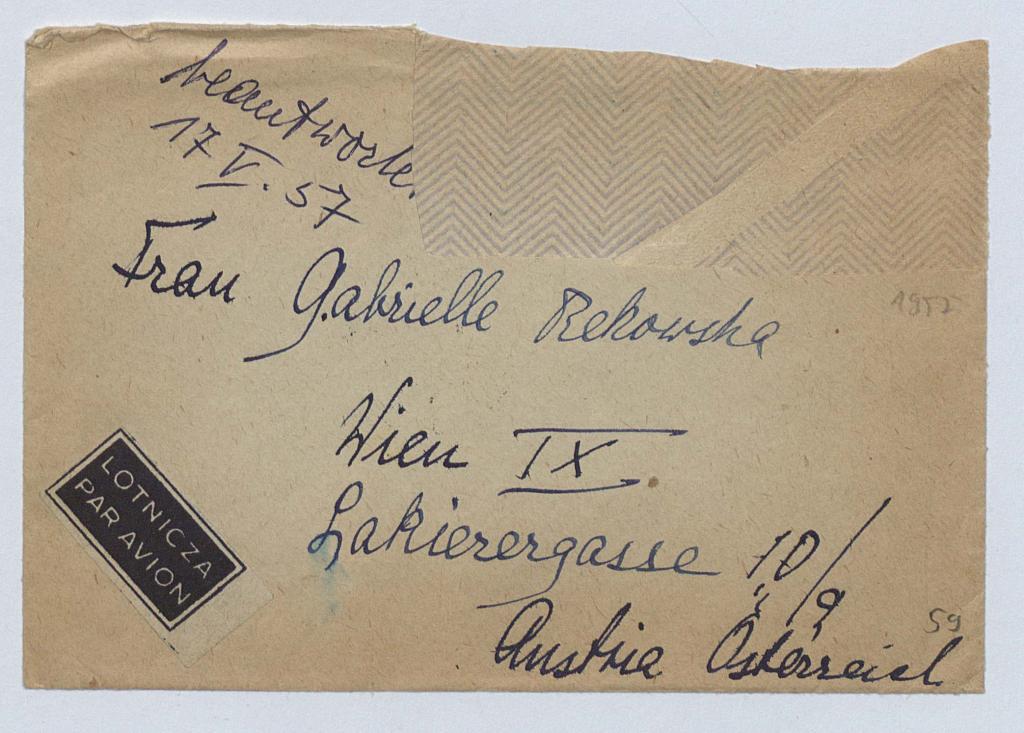 beantworte.
17 V. 57
Frau Gabrielle Rekowska
1957
Wien IX.
Lakierergasse 10/9
Austria Österreich
59
LOTNICZA
PAR AVION